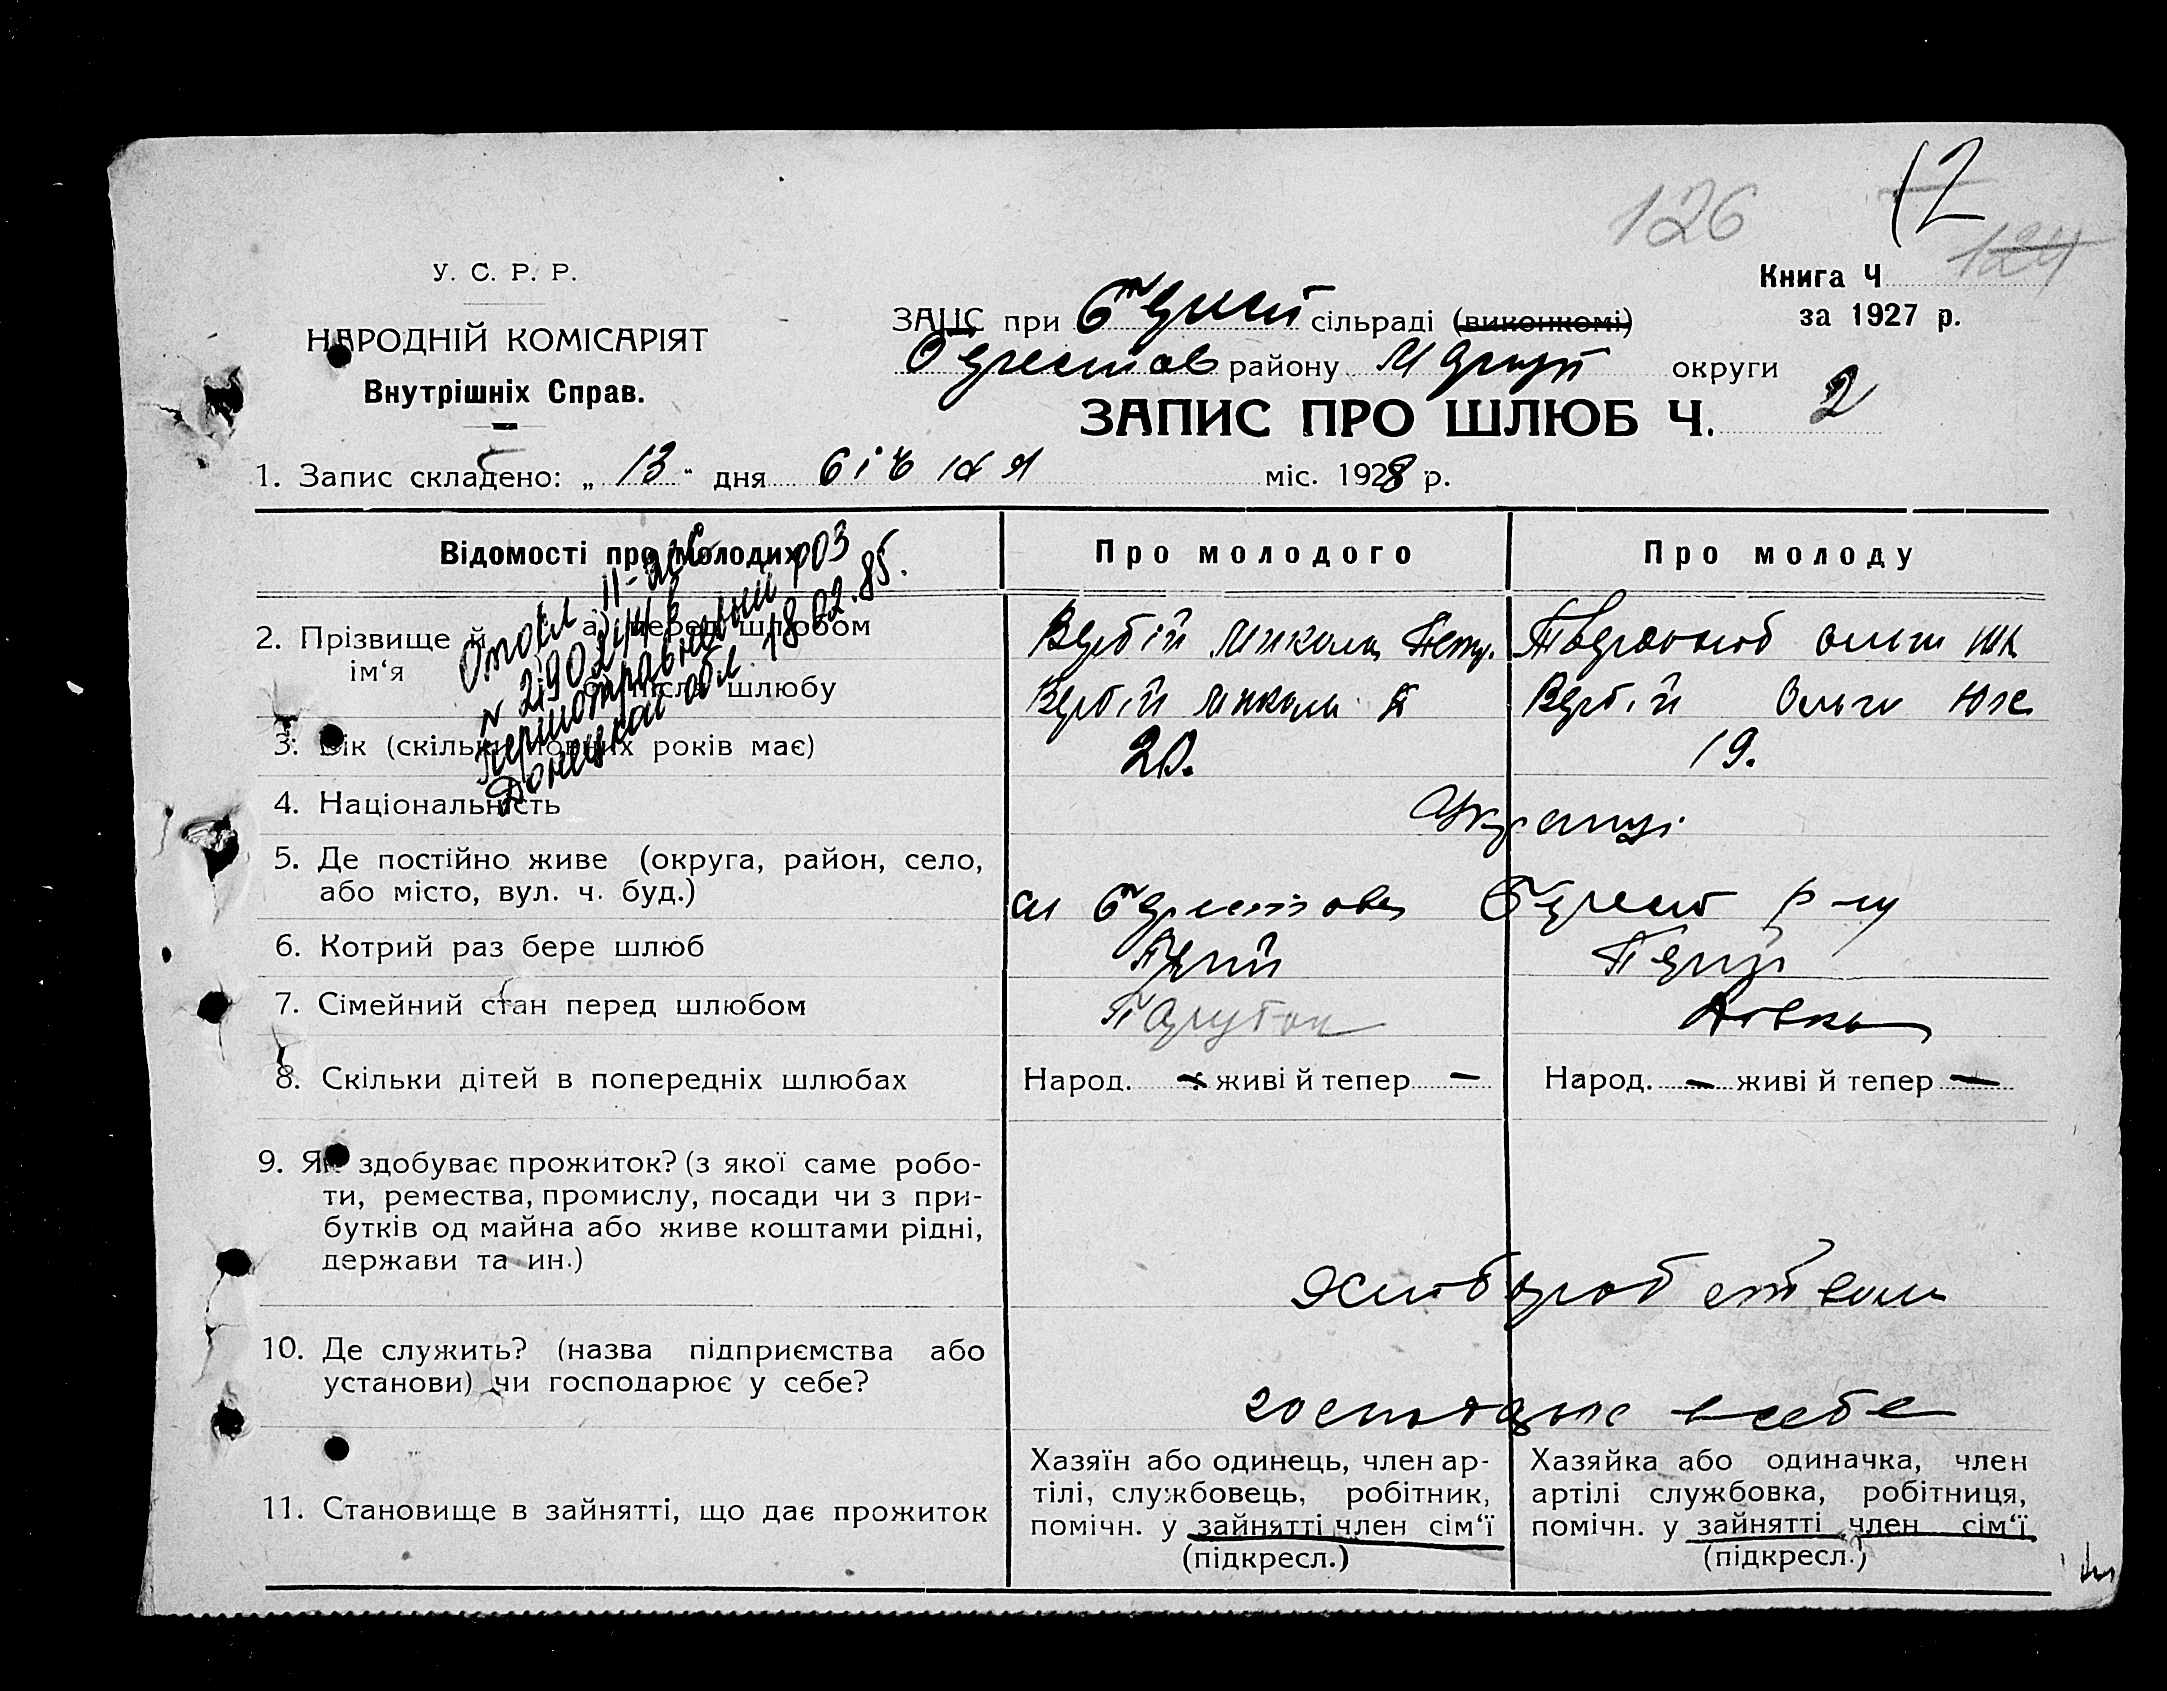 126
12
124
У. С. Р. Р.
НАРОДНІЙ КОМІСАРІЯТ
Внутрішніх Справ.
Книга Ч
за 1927 р.
ЗАПС при сільраді (виконкомі)
району округи
ЗАПИС ПРО ШЛЮБ Ч. 2
1. Запис складено: „ 13 “ дня січня міс. 1928 р.
Відомості про молодих
Про молодого
Про молоду
2. Прізвище й ім‘я
а) перед шлюбом
Вербій Микола Петр.
Ольга
б) після шлюбу
Вербій Микола П
Вербій Ольга
3. Вік (скільки повних років має)
20.
19.
4. Національність
Українці
5. Де постійно живе (округа, район, село,
або місто, вул. ч. буд.)
р-ну
6. Котрий раз бере шлюб
Перший
Перший
7. Сімейний стан перед шлюбом
Парубок
Дівка
8. Скільки дітей в попередніх шлюбах
Народ. — живі й тепер —
Народ. — живі й тепер —
9. Як здобуває прожиток? (з якої саме робо-
ти, ремества, промислу, посади чи з при-
бутків од майна або живе коштами рідні,
держави та ин.)
Хліборобством
10. Де служить? (назва підприємства або
установи) чи господарює у себе?
господарює в себе
11. Становище в зайнятті, що дає прожиток
Хазяїн або одинець, член ар-
тілі, службовець, робітник,
помічн. у зайнятті член сім‘ї
(підкресл.)
Хазяйка або одиначка, член
артілі службовка, робітниця,
помічн. у зайнятті член сім‘ї
(підкресл.)
Донецкой обл. 18.02.85.